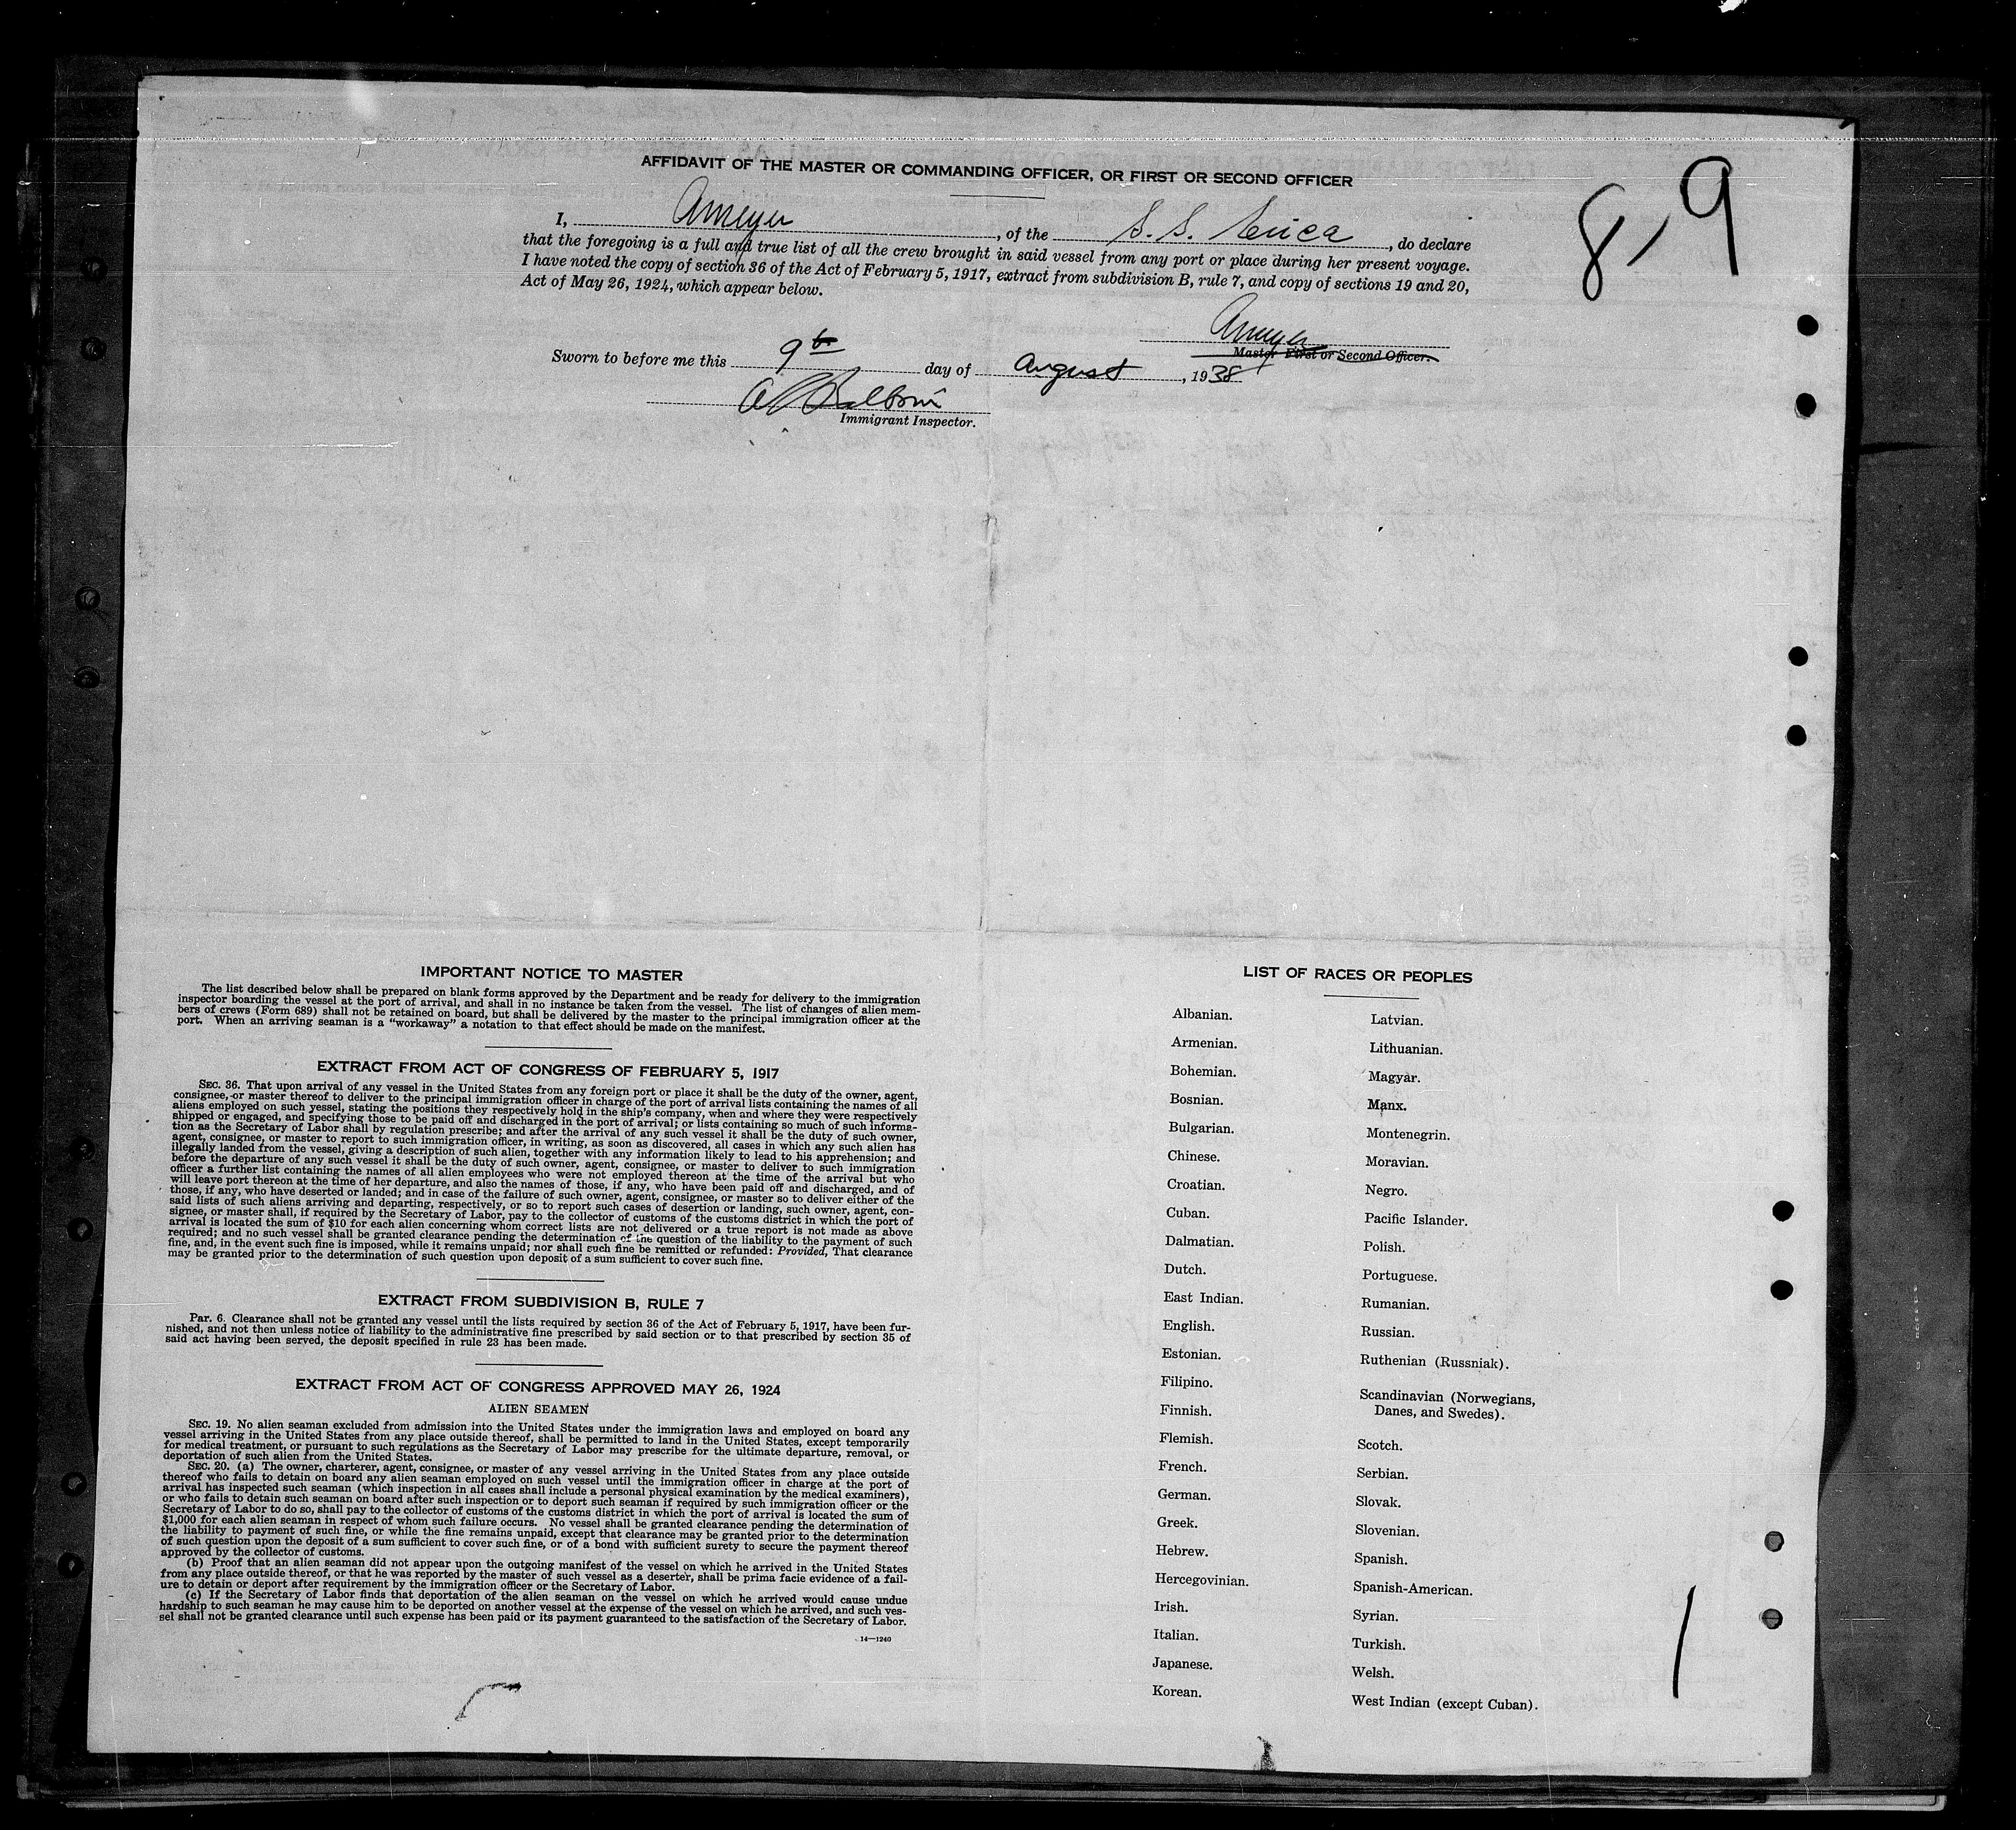 AFFIDAVIT OF THE MASTER OR COMMANDING OFFICER, OR FIRST OR SECOND OFFICER
8,9
I, AMeyer, of the S. S. Erica, do declare
that the foregoing is a full and true list of all the crew brought in said vessel from any port or place during her present voyage.
I have noted the copy of section 36 of the Act of February 5, 1917, extract from subdivision B, rule 7, and copy of sections 19 and 20,
Act of May 26, 1924, which appear below.
AMeyer
Master First or Second Officer.
Sworn to before me this 9th day of August, 1938
Immigrant Inspector.
IMPORTANT NOTICE TO MASTER
The list described below shall be prepared on blank forms approved by the Department and be ready for delivery to the immigration
inspector boarding the vessel at the port of arrival, and shall in no instance be taken from the vessel. The list of changes of alien mem-
bers of crews (Form 689) shall not be retained on board, but shall be delivered by the master to the principal immigration officer at the
port. When an arriving seaman is a "workaway" a notation to that effect should be made on the manifest.
EXTRACT FROM ACT OF CONGRESS OF FEBRUARY 5, 1917
SEC. 36. That upon arrival of any vessel in the United States from any foreign port or place it shall be the duty of the owner, agent,
consignee, or master thereof to deliver to the principal immigration officer in charge of the port of arrival lists containing the names of all
aliens employed on such vessel, stating the positions they respectively hold in the ship's company, when and where they were respectively
shipped or engaged, and specifying those to be paid off and discharged in the port of arrival; or lists containing so much of such informa-
tion as the Secretary of Labor shall by regulation prescribe; and after the arrival of any such vessel it shall be the duty of such owner,
agent, consignee, or master to report to such immigration officer, in writing, as soon as discovered, all cases in which any such alien has
illegally landed from the vessel, giving a description of such alien, together with any information likely to lead to his apprehension; and
before the departure of any such vessel it shall be the duty of such owner, agent, consignee, or master to deliver to such immigration
officer a further list containing the names of all alien employees who were not employed thereon at the time of the arrival but who
will leave port thereon at the time of her departure, and also the names of those, if any, who have been paid off and discharged, and of
those, if any, who have deserted or landed; and in case of the failure of such owner, agent, consignee, or master so to deliver either of the
said lists of such aliens arriving and departing, respectively, or so to report such cases of desertion or landing, such owner, agent, con-
signee, or master shall, if required by the Secretary of Labor, pay to the collector of customs of the customs district in which the port of
arrival is located the sum of $10 for each alien concerning whom correct lists are not delivered or a true report is not made as above
required; and no such vessel shall be granted clearance pending the determination of the question of the liability to the payment of such
fine, and, in the event such fine is imposed, while it remains unpaid; nor shall such fine be remitted or refunded: Provided, That clearance
may be granted prior to the determination of such question upon deposit of a sum sufficient to cover such fine.
EXTRACT FROM SUBDIVISION B, RULE 7
Par. 6. Clearance shall not be granted any vessel until the lists required by section 36 of the Act of February 5, 1917, have been fur-
nished, and not then unless notice of liability to the administrative fine prescribed by said section or to that prescribed by section 35 of
said act having been served, the deposit specified in rule 23 has been made.
EXTRACT FROM ACT OF CONGRESS APPROVED MAY 26, 1924
ALIEN SEAMEN
SEC. 19. No alien seaman excluded from admission into the United States under the immigration laws and employed on board any
vessel arriving in the United States from any place outside thereof, shall be permitted to land in the United States, except temporarily
for medical treatment, or pursuant to such regulations as the Secretary of Labor may prescribe for the ultimate departure, removal, or
deportation of such alien from the United States.
SEC. 20. (a) The owner, charterer, agent, consignee, or master of any vessel arriving in the United States from any place outside
thereof who fails to detain on board any alien seaman employed on such vessel until the immigration officer in charge at the port of
arrival has inspected such seaman (which inspection in all cases shall include a personal physical examination by the medical examiners),
or who fails to detain such seaman on board after such inspection or to deport such seaman if required by such immigration officer or the
Secretary of Labor to do so, shall pay to the collector of customs of the customs district in which the port of arrival is located the sum of
$1,000 for each alien seaman in respect of whom such failure occurs. No vessel shall be granted clearance pending the determination of
the liability to payment of such fine, or while the fine remains unpaid, except that clearance may be granted prior to the determination
of such question upon the deposit of a sum sufficient to cover such fine, or of a bond with sufficient surety to secure the payment thereof
approved by the collector of customs.
(b) Proof that an alien seaman did not appear upon the outgoing manifest of the vessel on which he arrived in the United States
from any place outside thereof, or that he was reported by the master of such vessel as a deserter, shall be prima facie evidence of a fail-
ure to detain or deport after requirement by the immigration officer or the Secretary of Labor.
(c) If the Secretary of Labor finds that deportation of the alien seaman on the vessel on which he arrived would cause undue
hardship to such seaman he may cause him to be deported on another vessel at the expense of the vessel on which he arrived, and such ves-
sel shall not be granted clearance until such expense has been paid or its payment guaranteed to the satisfaction of the Secretary of Labor.
14—1240
LIST OF RACES OR PEOPLES
Albanian.
Armenian.
Bohemian.
Bosnian.
Bulgarian.
Chinese.
Croatian.
Cuban.
Dalmatian.
Dutch.
East Indian.
English.
Estonian.
Filipino.
Finnish.
Flemish.
French.
German.
Greek.
Hebrew.
Hercegovinian.
Irish.
Italian.
Japanese.
Korean.
Latvian.
Lithuanian.
Magyar.
Manx.
Montenegrin.
Moravian.
Negro.
Pacific Islander.
Polish.
Portuguese.
Rumanian.
Russian.
Ruthenian (Russniak).
Scandinavian (Norwegians,
Danes, and Swedes).
Scotch.
Serbian.
Slovak.
Slovenian.
Spanish.
Spanish-American.
Syrian.
Turkish.
Welsh.
West Indian (except Cuban).
1